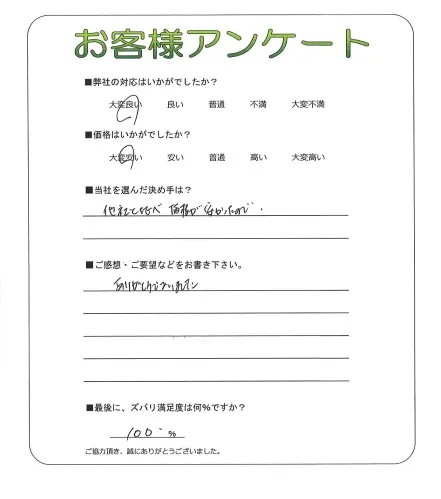 お客様アンケート
■弊社の対応はいかがでしたか?
大変良い 良い 普通 不満 大変不満
■価格はいかがでしたか?
大変安い 安い 普通 高い 大変高い
■当社を選んだ決め手は?
他社と比べ 価格が安かったので.
■ご感想・ご要望などをお書き下さい。
ありがとうございました
■最後に、ズバリ満足度は何%ですか?
100 %
ご協力頂き、誠にありがとうございました。